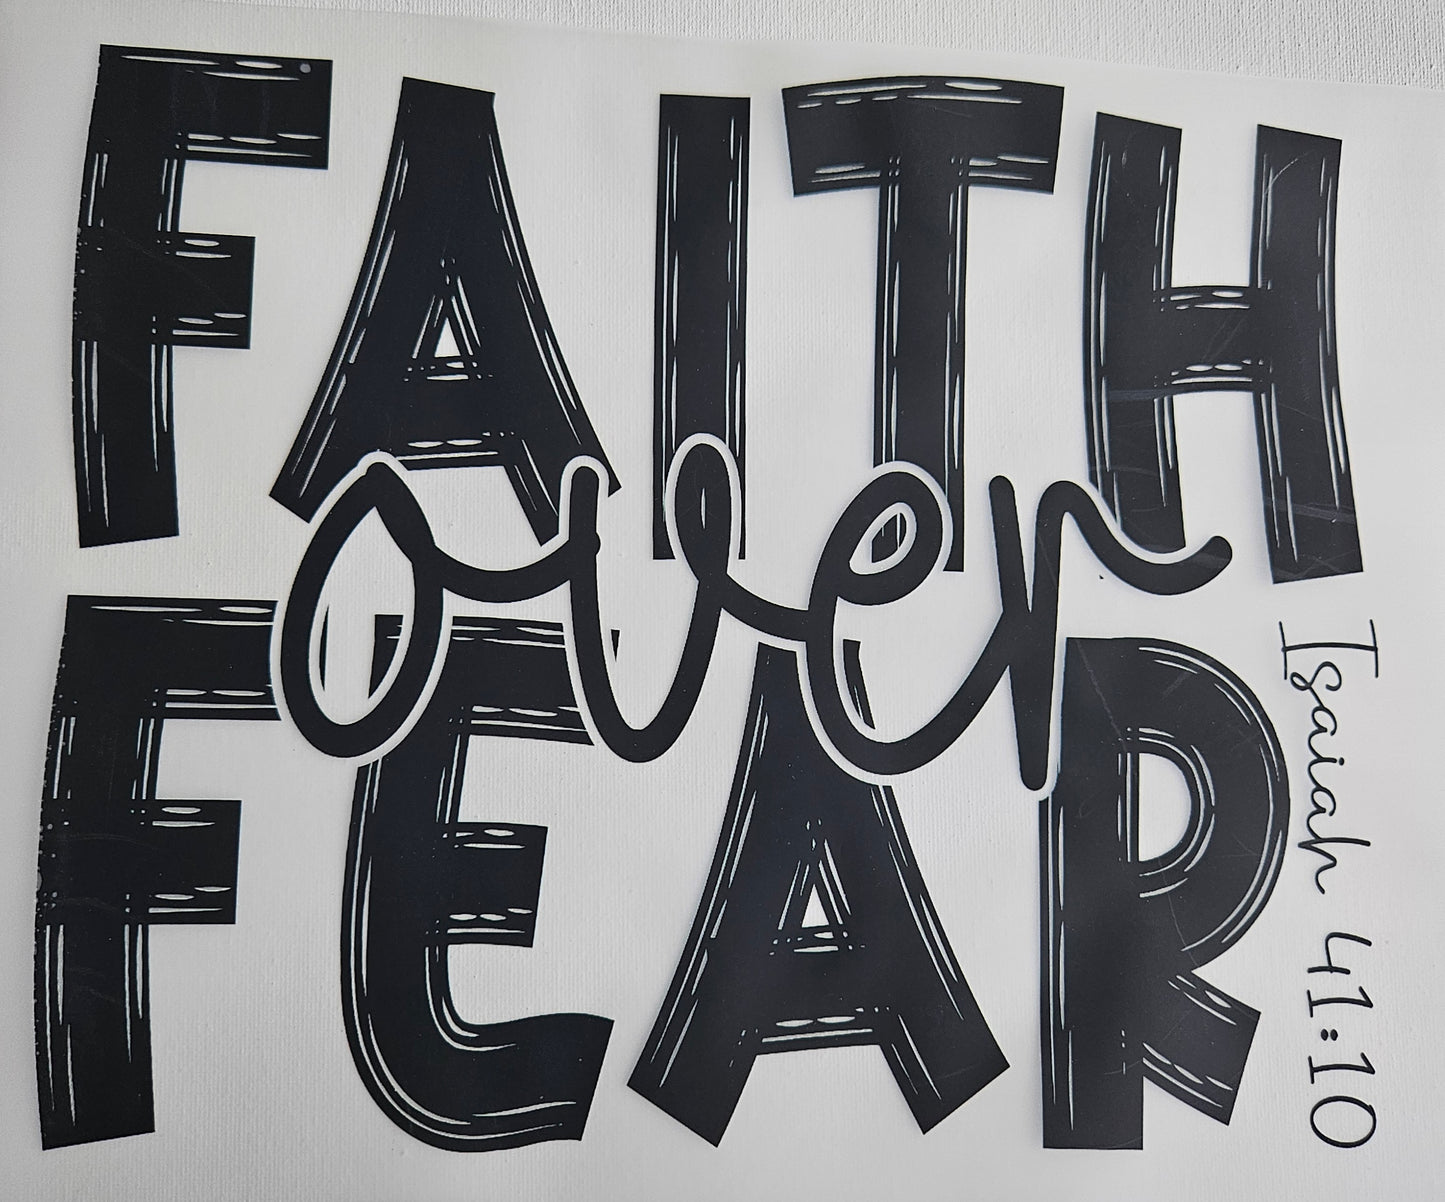 FAITH
over
FEAR
Isaiah 41:10